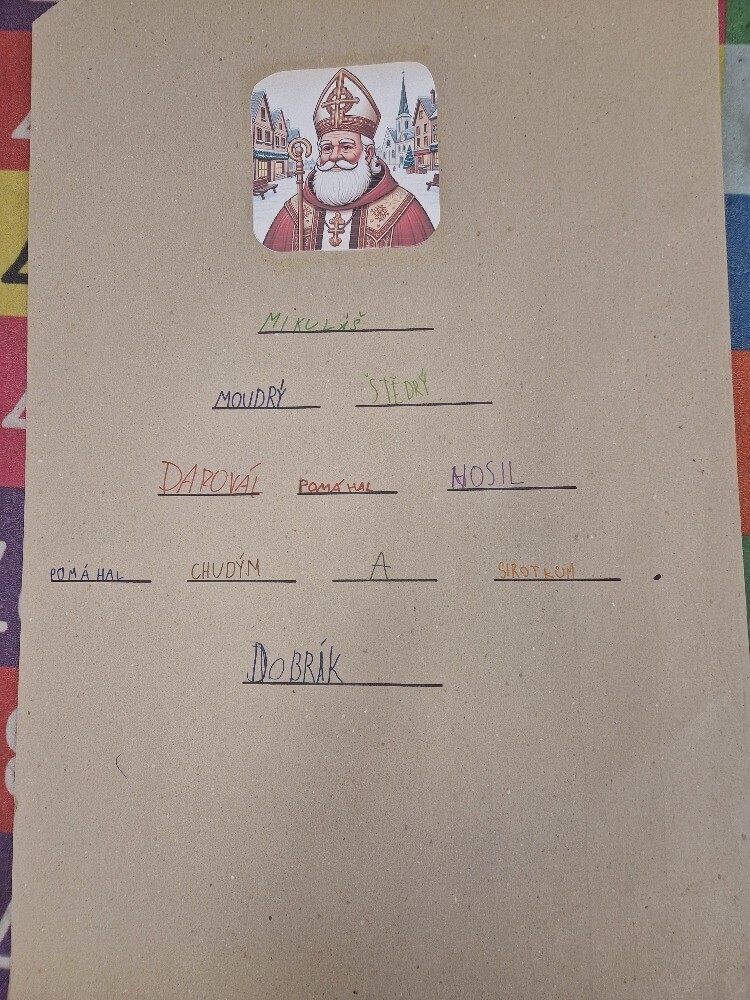 MIKULÁŠ
MOUDRÝ ŠTĚDRÝ
DAROVAL POMÁHAL NOSIL
POMÁHAL CHUDÝM A SIROTKUM.
DOBRÁK